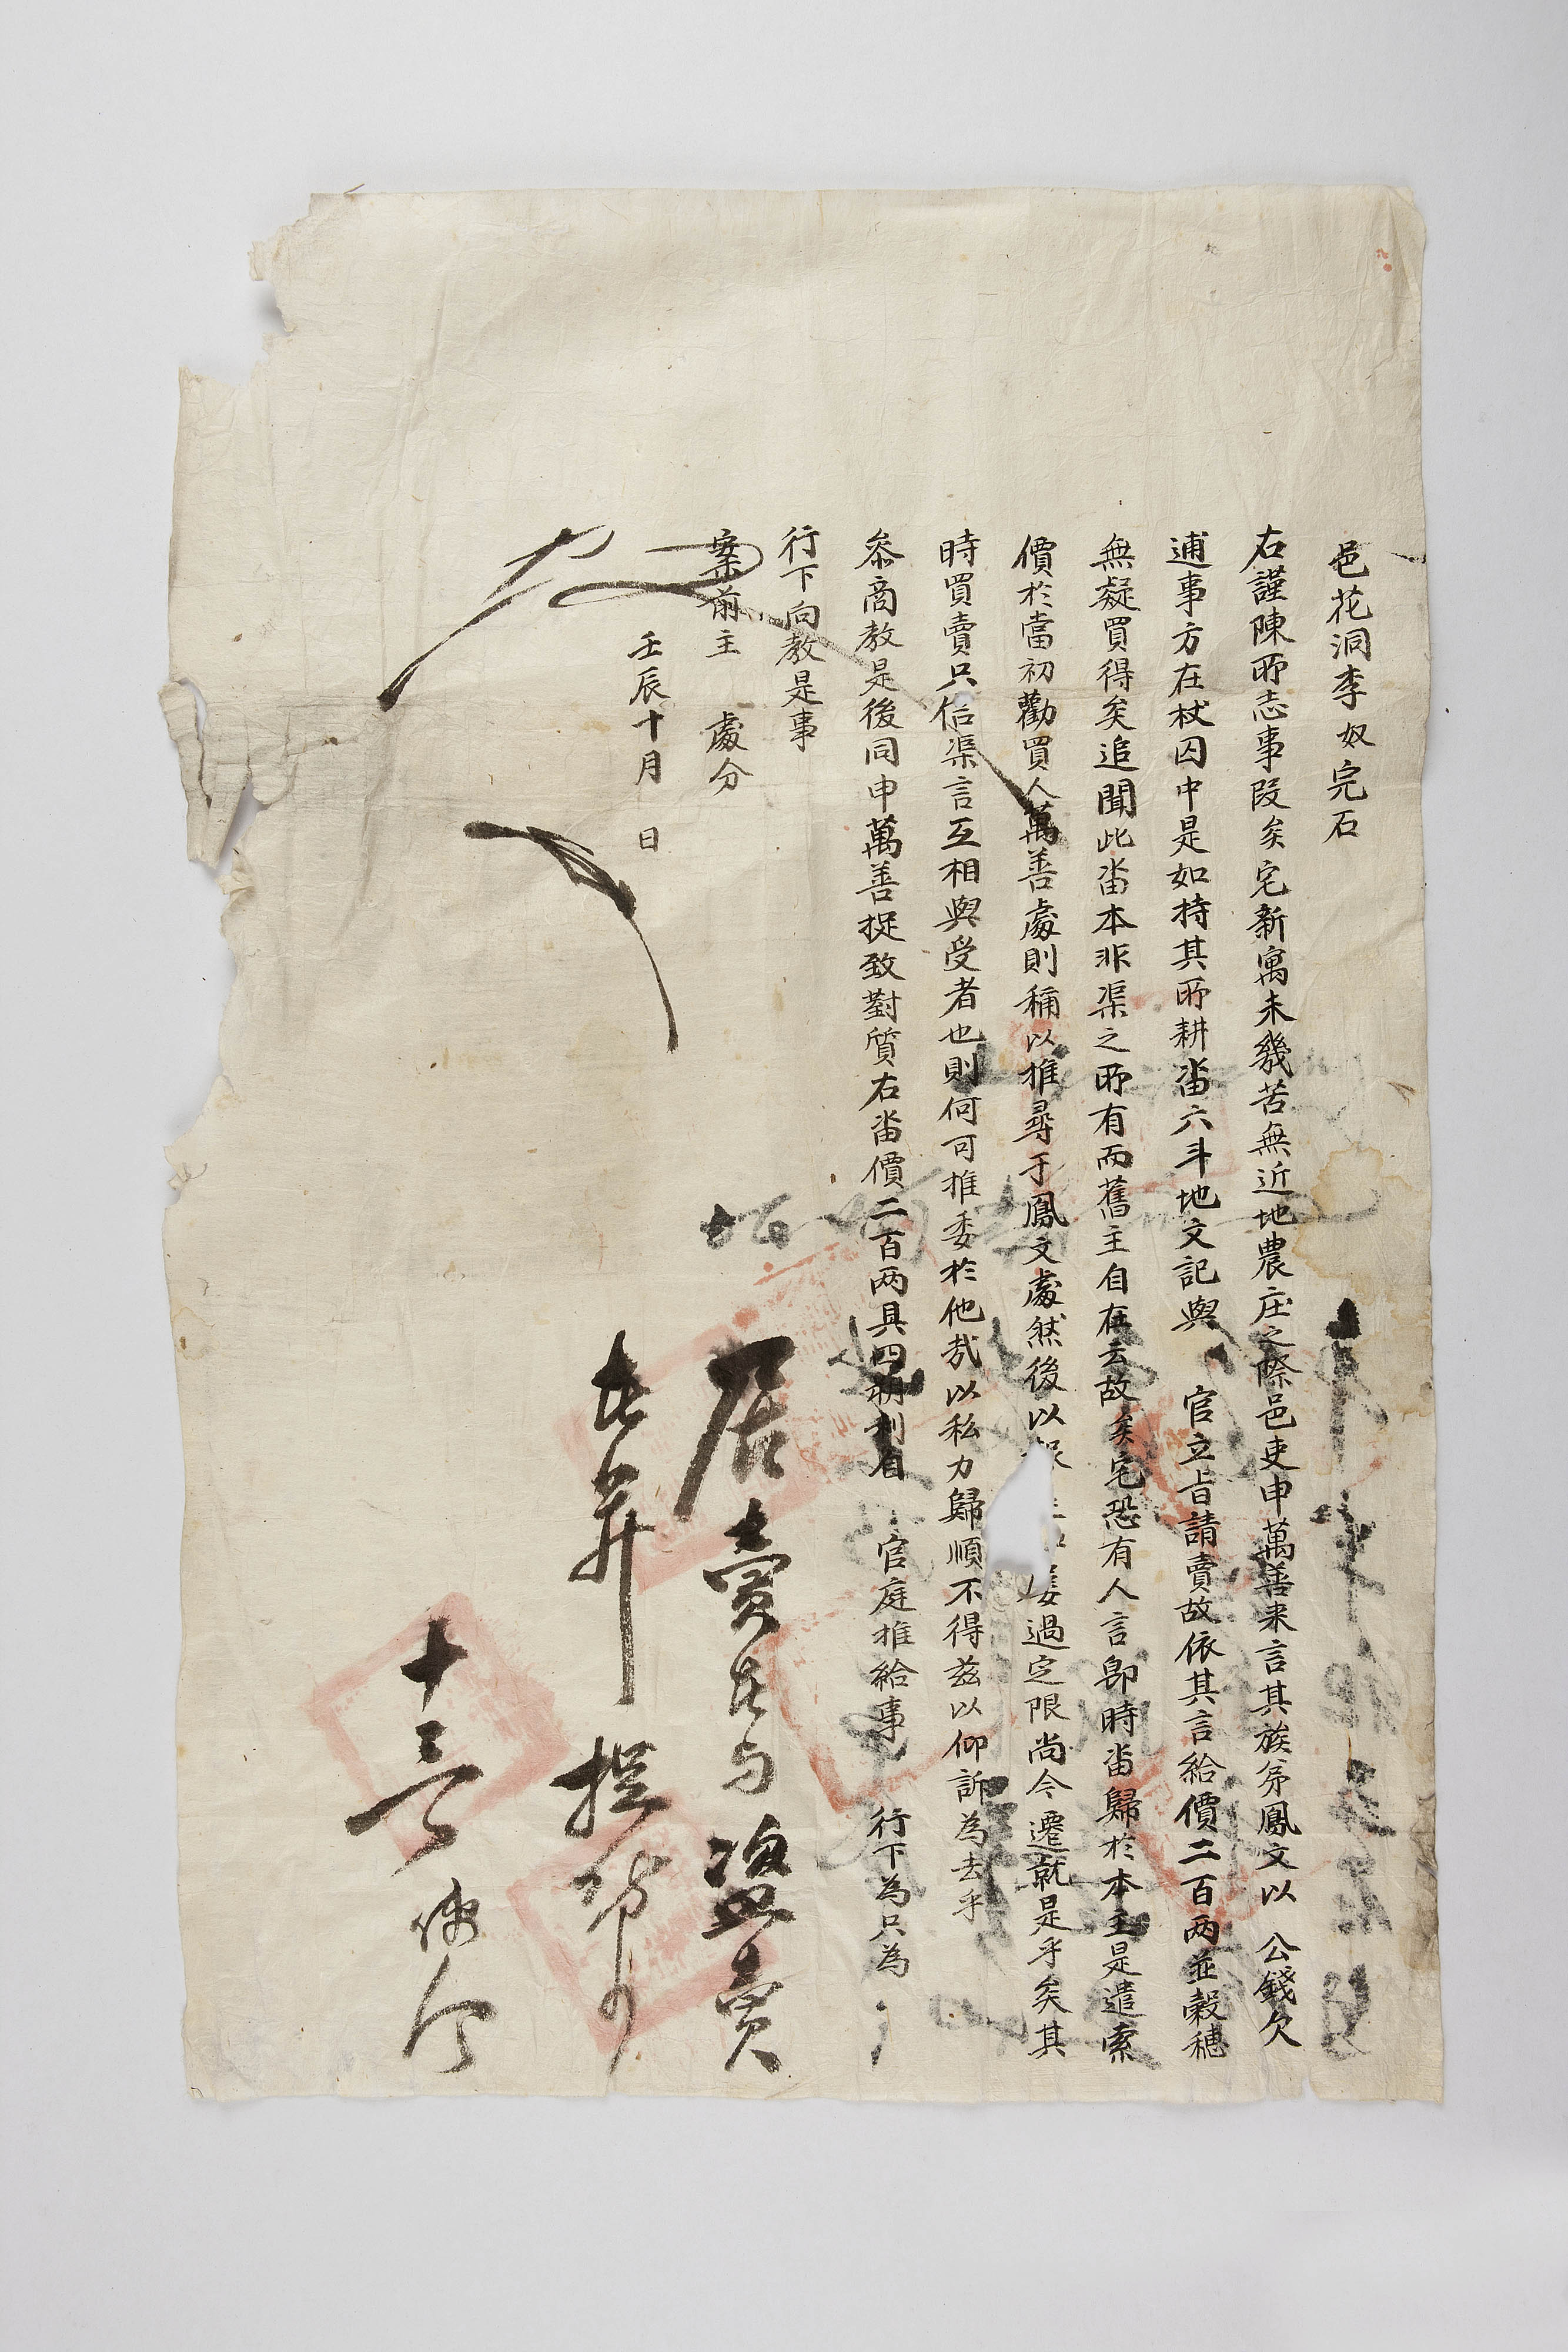 邑花洞李奴完石
右謹陳所志事段矣宅新寓未幾苦無近地農庄之際邑吏申萬善來言其族弟鳳文以 公錢欠
逋事方在杖囚中是如持其所耕畓六斗地文記與 官立旨請賣故依其言給價二百両並穀穗
無疑買得矣追聞此畓本非渠之所有而舊主自在云故矣宅恐有人言卽時畓歸於本主是遣索
價於當初勸買人萬善處則稱以推尋于鳳文處然後以報 屢過定限尙今遷就是乎矣其
時買賣只信渠言互相與受者也則何可推委於他㢤以私力歸順不得玆以仰訴為去乎
叅商敎是後同申萬善捉致對質右畓價二百両具四朔利自 官庭推給事 行下為只為
行下向敎是事
案前主 處分
壬辰十月 日
居賣者与盜賣
者幷捉待事
十三 使令